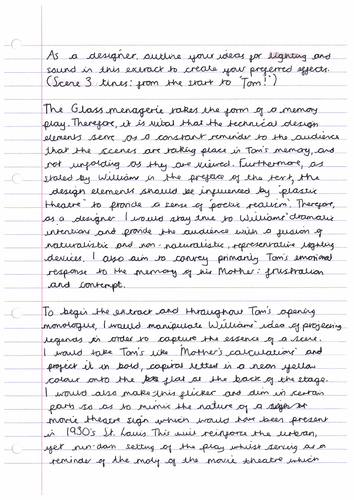 As a designer, outline your ideas for lighting and
sound in this extract to create your preferred effects.
(Scene 3 lines: from the start to 'Tom!')
The Glass menagerie takes the form of a memory
play. Therefore, it is vital that the technical design
elements serve as a constant reminder to the audience
that the scenes are taking place in Tom's memory, and
not unfolding as they are viewed. Furthermore, as
stated by Williams in the preface of the text, the
design elements should be influenced by 'plastic
theatre' to provide a sense of 'poetic realism'. Therefore,
as a designer I would stay true to Williams' dramatic
intentions and provide the audience with a fusion of
naturalistic and non-naturalistic, representative lighting
devices. I also aim to convey primarily Tom's emotional
response to the memory of his Mother: frustration
and contempt.
To begin the extract and throughout Tom's opening
monologue, I would manipulate Williams' idea of projecting
legends in order to capture the essence of a scene.
I would take Tom's line 'Mother's calculation' and
project it in bold, capital letters in a neon yellow
colour onto the flat at the back of the stage.
I would also make this flicker and dim in certain
parts so as to mimic the nature of a
movie theatre sign which would have been present
in 1930's St. Louis. This will reinforce the urban,
yet run-down setting of the play whilst serving as a
reminder of the of the movie theatre which